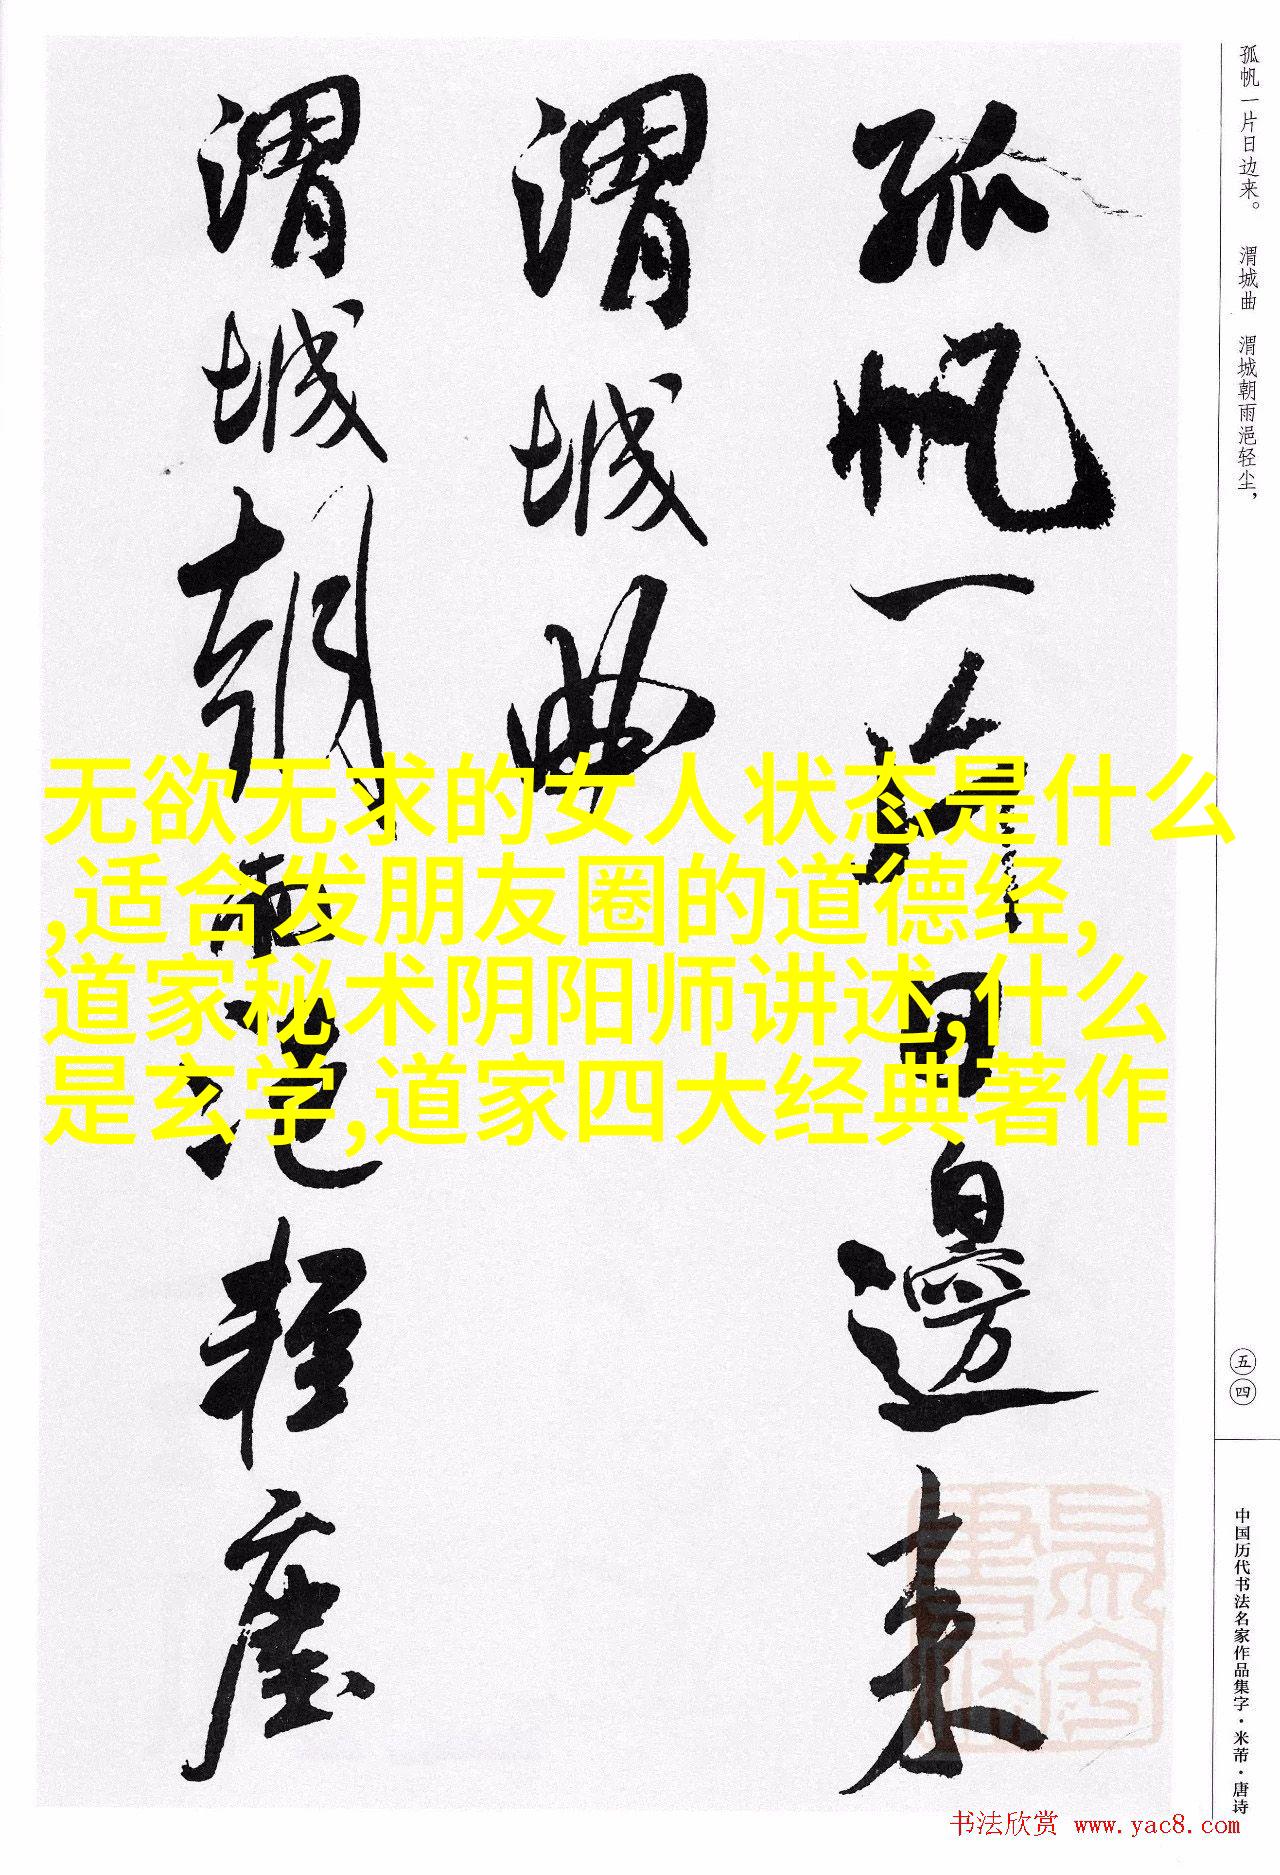 孤帆一片日边来。 渭城曲 渭城朝雨浥轻尘，
孤帆一片日邊来
渭城曲
渭城朝雨浥轻塵
无欲无求的女人状态是什么
,适合发朋友圈的道德经,
道家秘术阴阳师讲述,什么
是玄学,道家四大经典著作
五四
中国历代书法名家作品集字·米芾·唐诗
书法欣赏 www.yac8.com